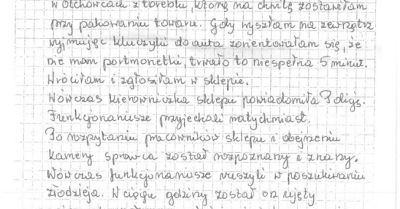 w Olchowcach z torebką, którą na chwilę zostawiłam
przy pakowaniu towaru. Gdy wyszłam na zewnątrz
wyjmując kluczyki do auta zorientowałam się, że
nie mam portmonetki, trwało to niespełna 5 minut.
Wróciłam i zgłosiłam w sklepie.
Wówczas kierowniczka sklepu powiadomiła Policję.
Funkcjonariusze przyjechali natychmiast.
Po rozpytaniu pracowników sklepu i obejrzeniu
kamery sprawca został rozpoznany i znany.
Wówczas funkcjonariusze ruszyli w poszukiwaniu
złodzieja. W ciągu godziny został on ujęty